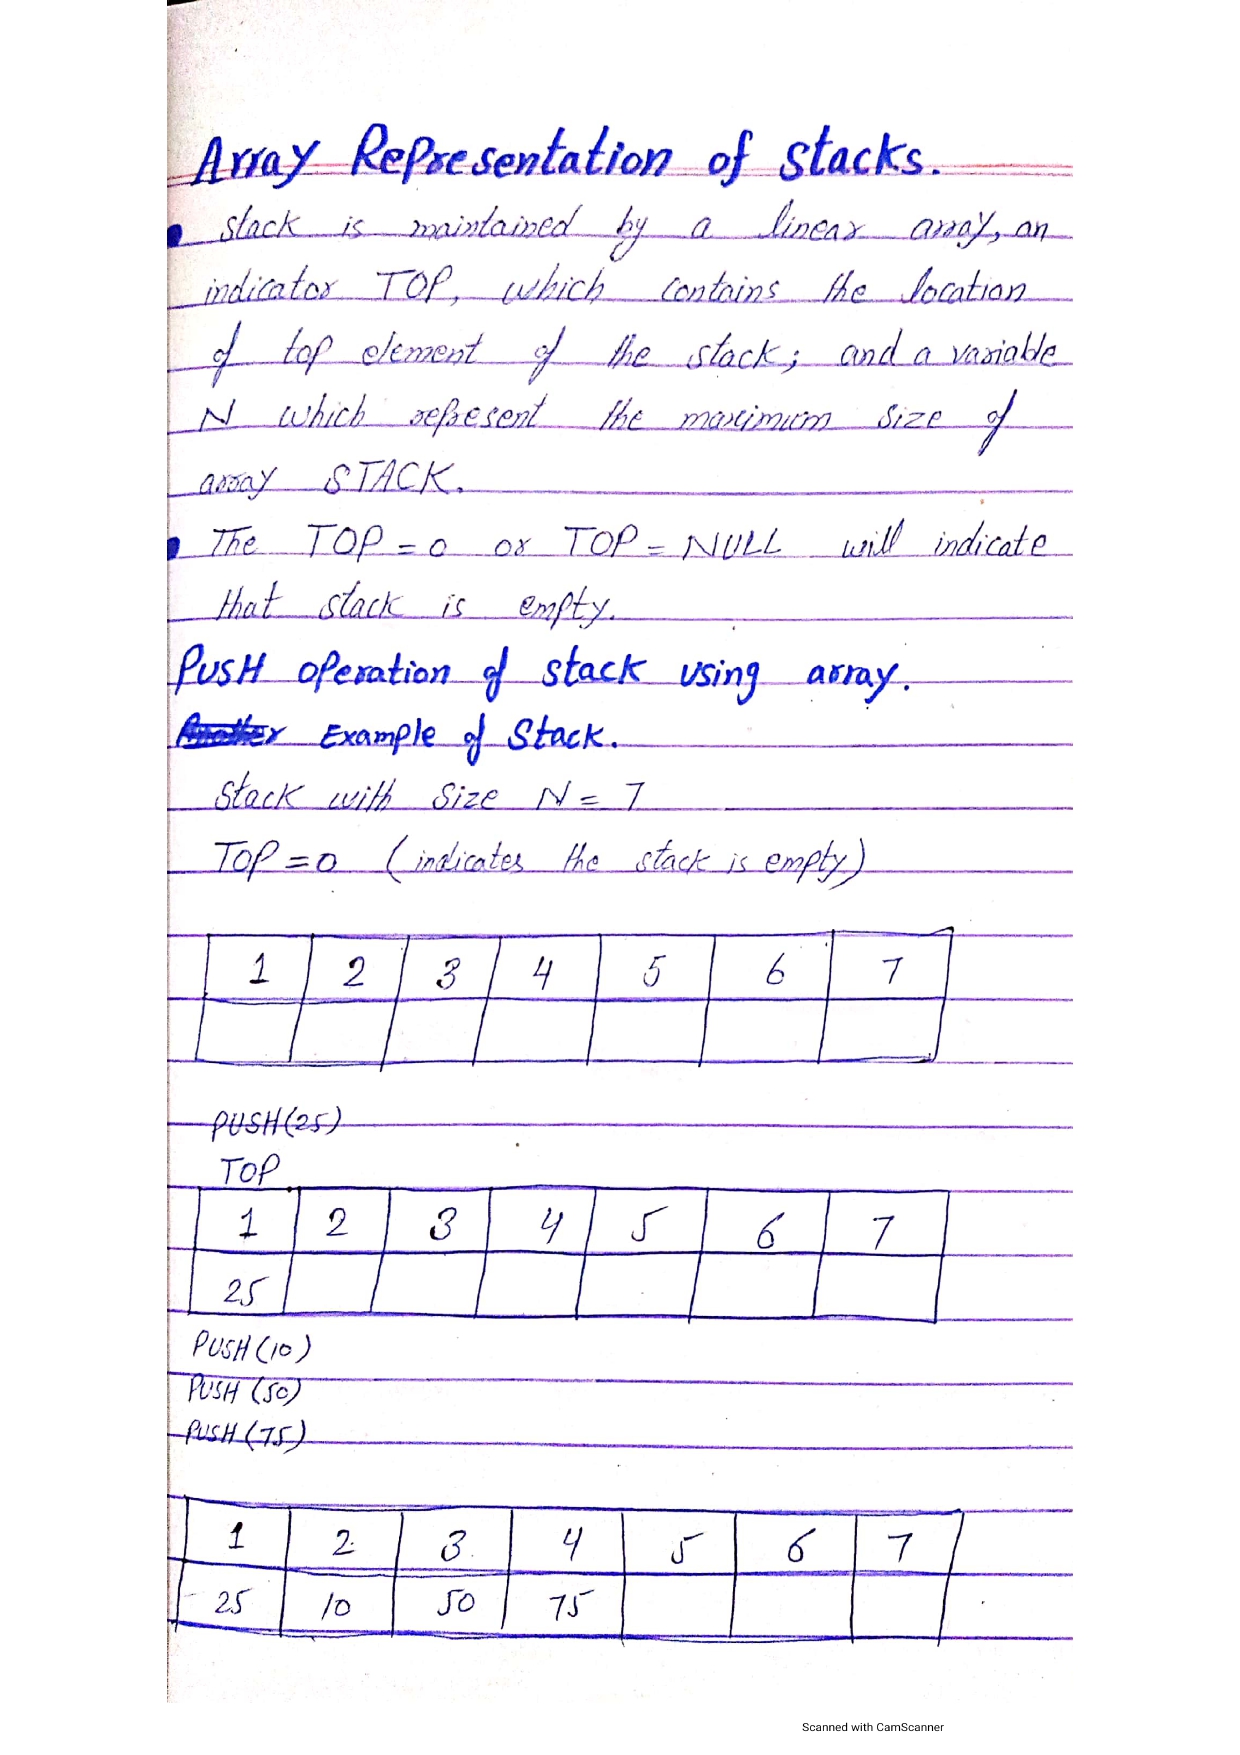 Array Representation of stacks.
stack is maintained by a linear array, an
indicator TOP, which contains the location
of top element of the stack; and a variable
N which represent the maximum size of
array STACK.
The TOP = 0 or TOP = NULL will indicate
that stack is empty.
PUSH operation of stack using array.
Example of Stack.
Stack with Size N = 7
TOP = 0 (indicates the stack is empty)
1 2 3 4 5 6 7
PUSH(25)
TOP
1 2 3 4 5 6 7
25
PUSH(10)
PUSH(50)
PUSH(75)
1 2 3 4 5 6 7
25 10 50 75
Scanned with CamScanner